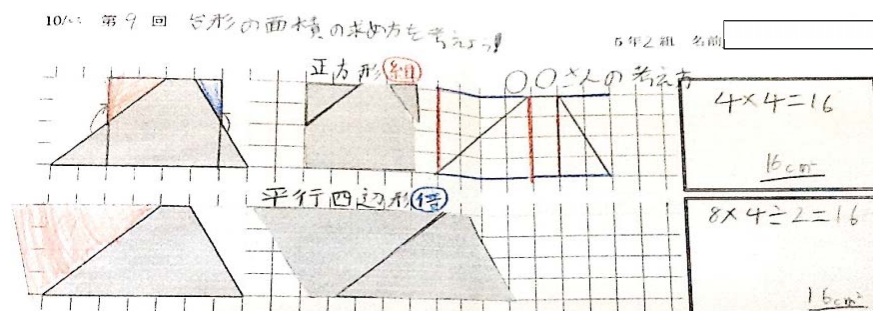 10/ 第9回 台形の面積の求め方を考えよう!
5年2組 名前
正方形 ㊀
〇〇さんの考え方
4×4=16
16cm²
平行四辺形 倍
8×4÷2=16
16cm²